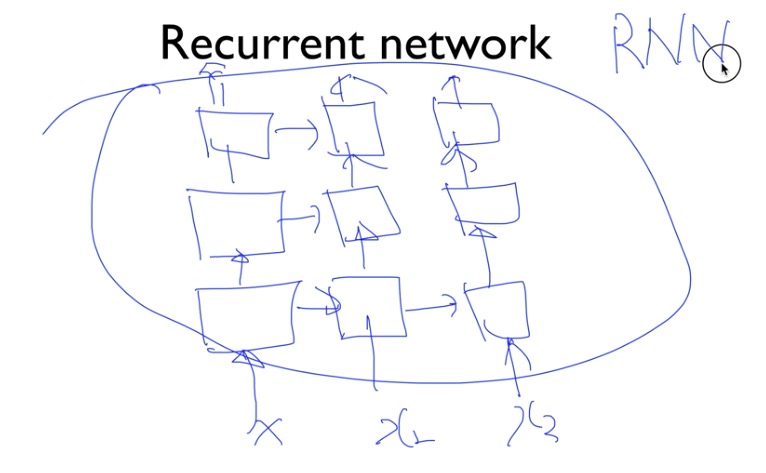 Recurrent network
RNN
x x1 x2